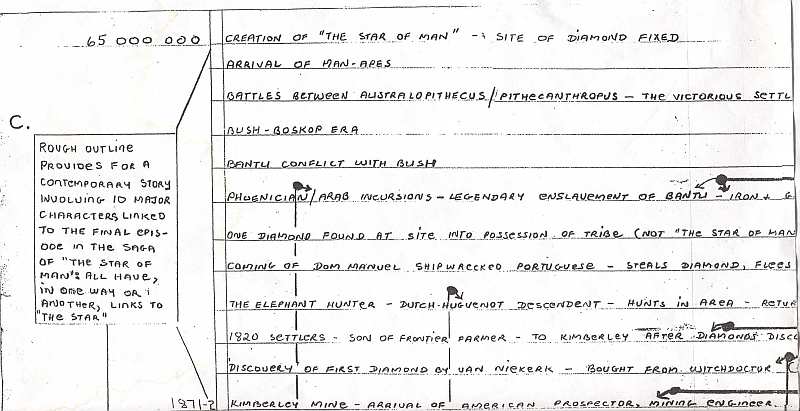 65 000 000 CREATION OF "THE STAR OF MAN" - SITE OF DIAMOND FIXED
ARRIVAL OF MAN-APES
BATTLES BETWEEN AUSTRALOPITHECUS/PITHECANTHROPUS - THE VICTORIOUS SETTL
C.
BUSH-BOSKOP ERA
BANTU CONFLICT WITH BUSH
ROUGH OUTLINE
PROVIDES FOR A
CONTEMPORARY STORY
INVOLVING 10 MAJOR
CHARACTERS LINKED
TO THE FINAL EPIS-
ODE IN THE SAGA
OF "THE STAR OF
MAN". ALL HAVE,
IN ONE WAY OR
ANOTHER, LINKS TO
"THE STAR"
PHOENICIAN/ARAB INCURSIONS - LEGENDARY ENSLAVEMENT OF BANTU - IRON + G
ONE DIAMOND FOUND AT SITE INTO POSSESSION OF TRIBE (NOT "THE STAR OF MAN
COMING OF DOM MANUEL SHIPWRECKED PORTUGUESE - STEALS DIAMOND, FLEES
THE ELEPHANT HUNTER - DUTCH-HUGUENOT DESCENDENT - HUNTS IN AREA - RETUR
1820 SETTLERS - SON OF FRONTIER FARMER - TO KIMBERLEY AFTER DIAMONDS DISC
DISCOVERY OF FIRST DIAMOND BY VAN NIEKERK - BOUGHT FROM WITCHDOCTOR
1871-? KIMBERLEY MINE - ARRIVAL OF AMERICAN PROSPECTOR, MINING ENGINEER.